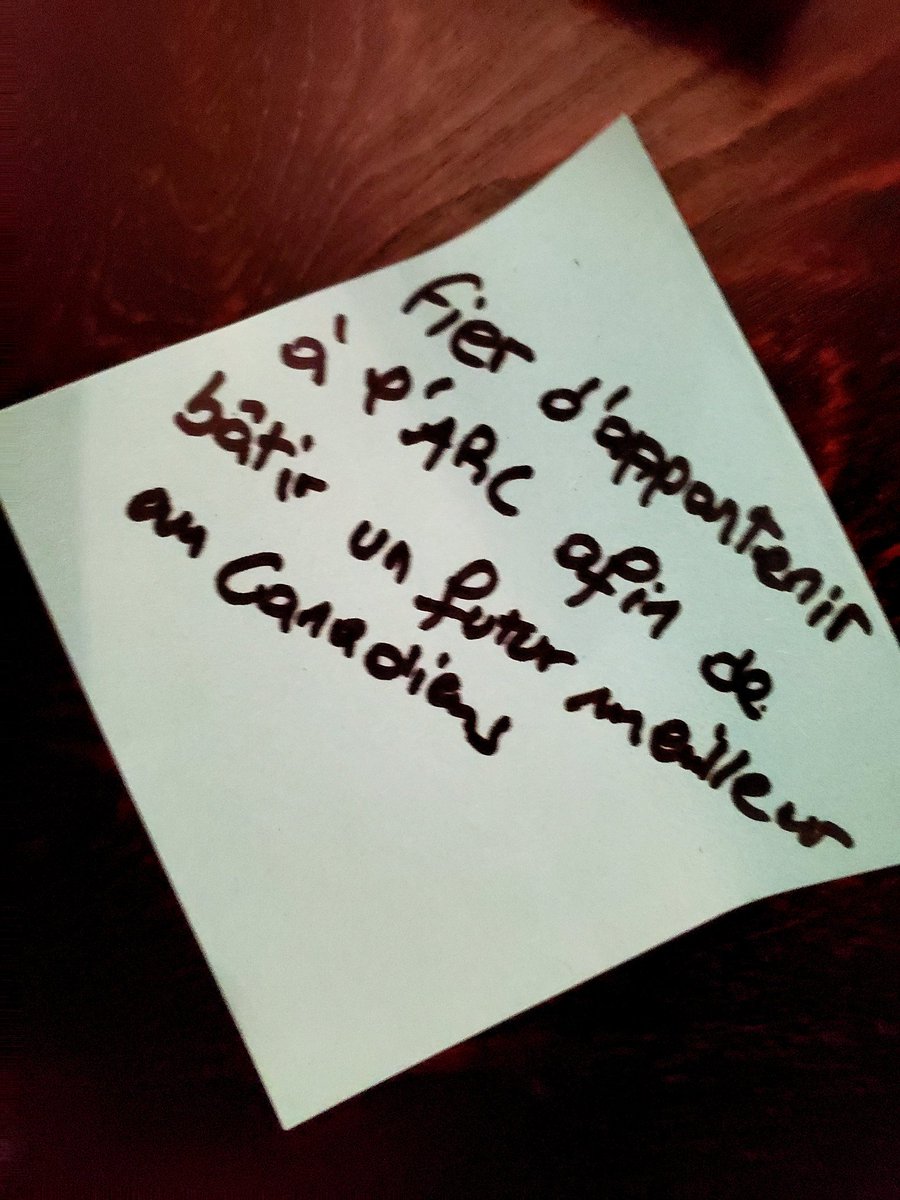 Fier d'appartenir
à l'ARC afin de
bâtir un futur meilleur
au Canadiens